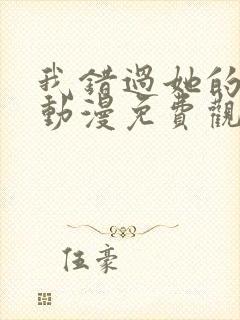 我錯過她的
動漫免費觀
伍豪